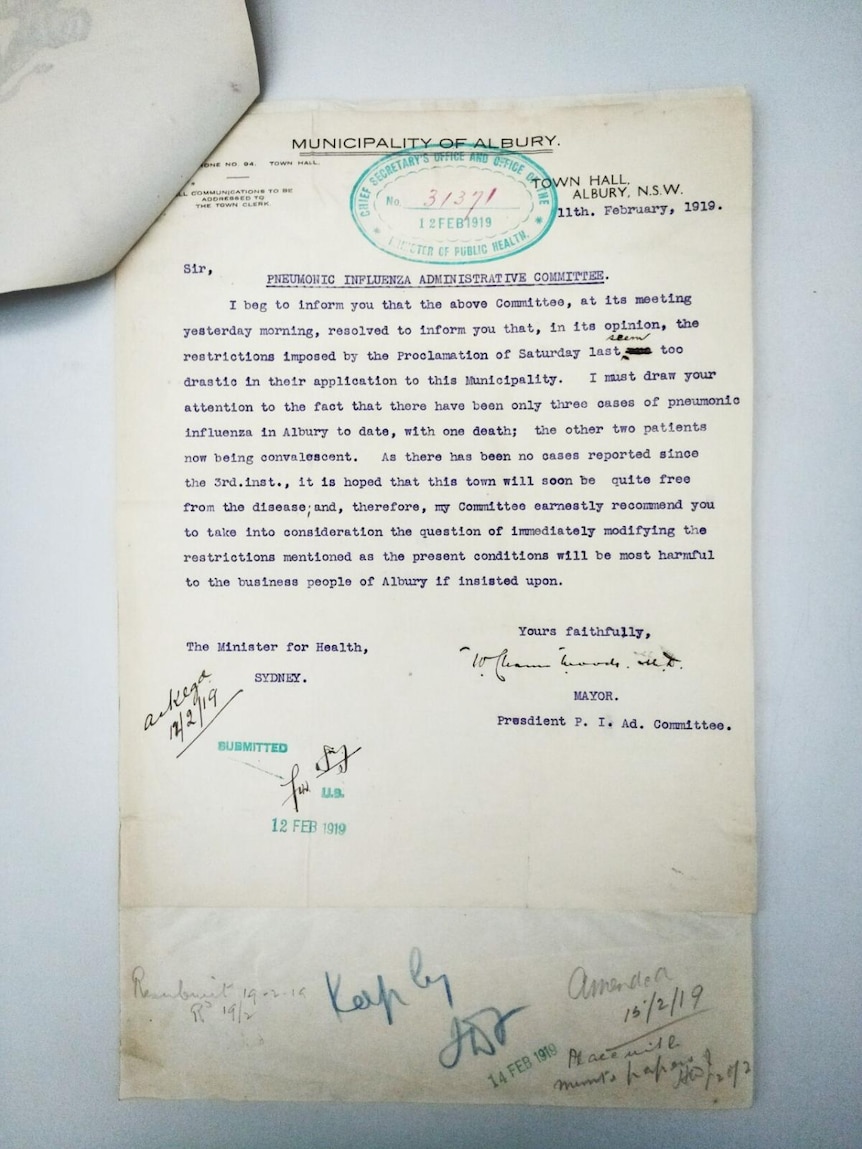 MUNICIPALITY OF ALBURY.
ONE NO. 94. TOWN HALL.
L COMMUNICATIONS TO BE
ADDRESSED TO
THE TOWN CLERK.
CHIEF SECRETARY'S OFFICE AND OFFICE OF THE
No. 31371
12 FEB 1919
MINISTER OF PUBLIC HEALTH.
TOWN HALL,
ALBURY, N.S.W.
11th. February, 1919.
Sir,
PNEUMONIC INFLUENZA ADMINISTRATIVE COMMITTEE.
I beg to inform you that the above Committee, at its meeting
yesterday morning, resolved to inform you that, in its opinion, the
seem
restrictions imposed by the Proclamation of Saturday last, too
drastic in their application to this Municipality. I must draw your
attention to the fact that there have been only three cases of pneumonic
influenza in Albury to date, with one death; the other two patients
now being convalescent. As there has been no cases reported since
the 3rd.inst., it is hoped that this town will soon be quite free
from the disease;and, therefore, my Committee earnestly recommend you
to take into consideration the question of immediately modifying the
restrictions mentioned as the present conditions will be most harmful
to the business people of Albury if insisted upon.
Yours faithfully,
The Minister for Health,
SYDNEY.
Woods. M.D.
MAYOR.
Presdient P. I. Ad. Committee.
ackegd
12/2/19
SUBMITTED
U.S.
12 FEB 1919
Resubmit 19-2-19
19/2
Keep by
14 FEB 1919
Amended
15/2/19
Place with
papers